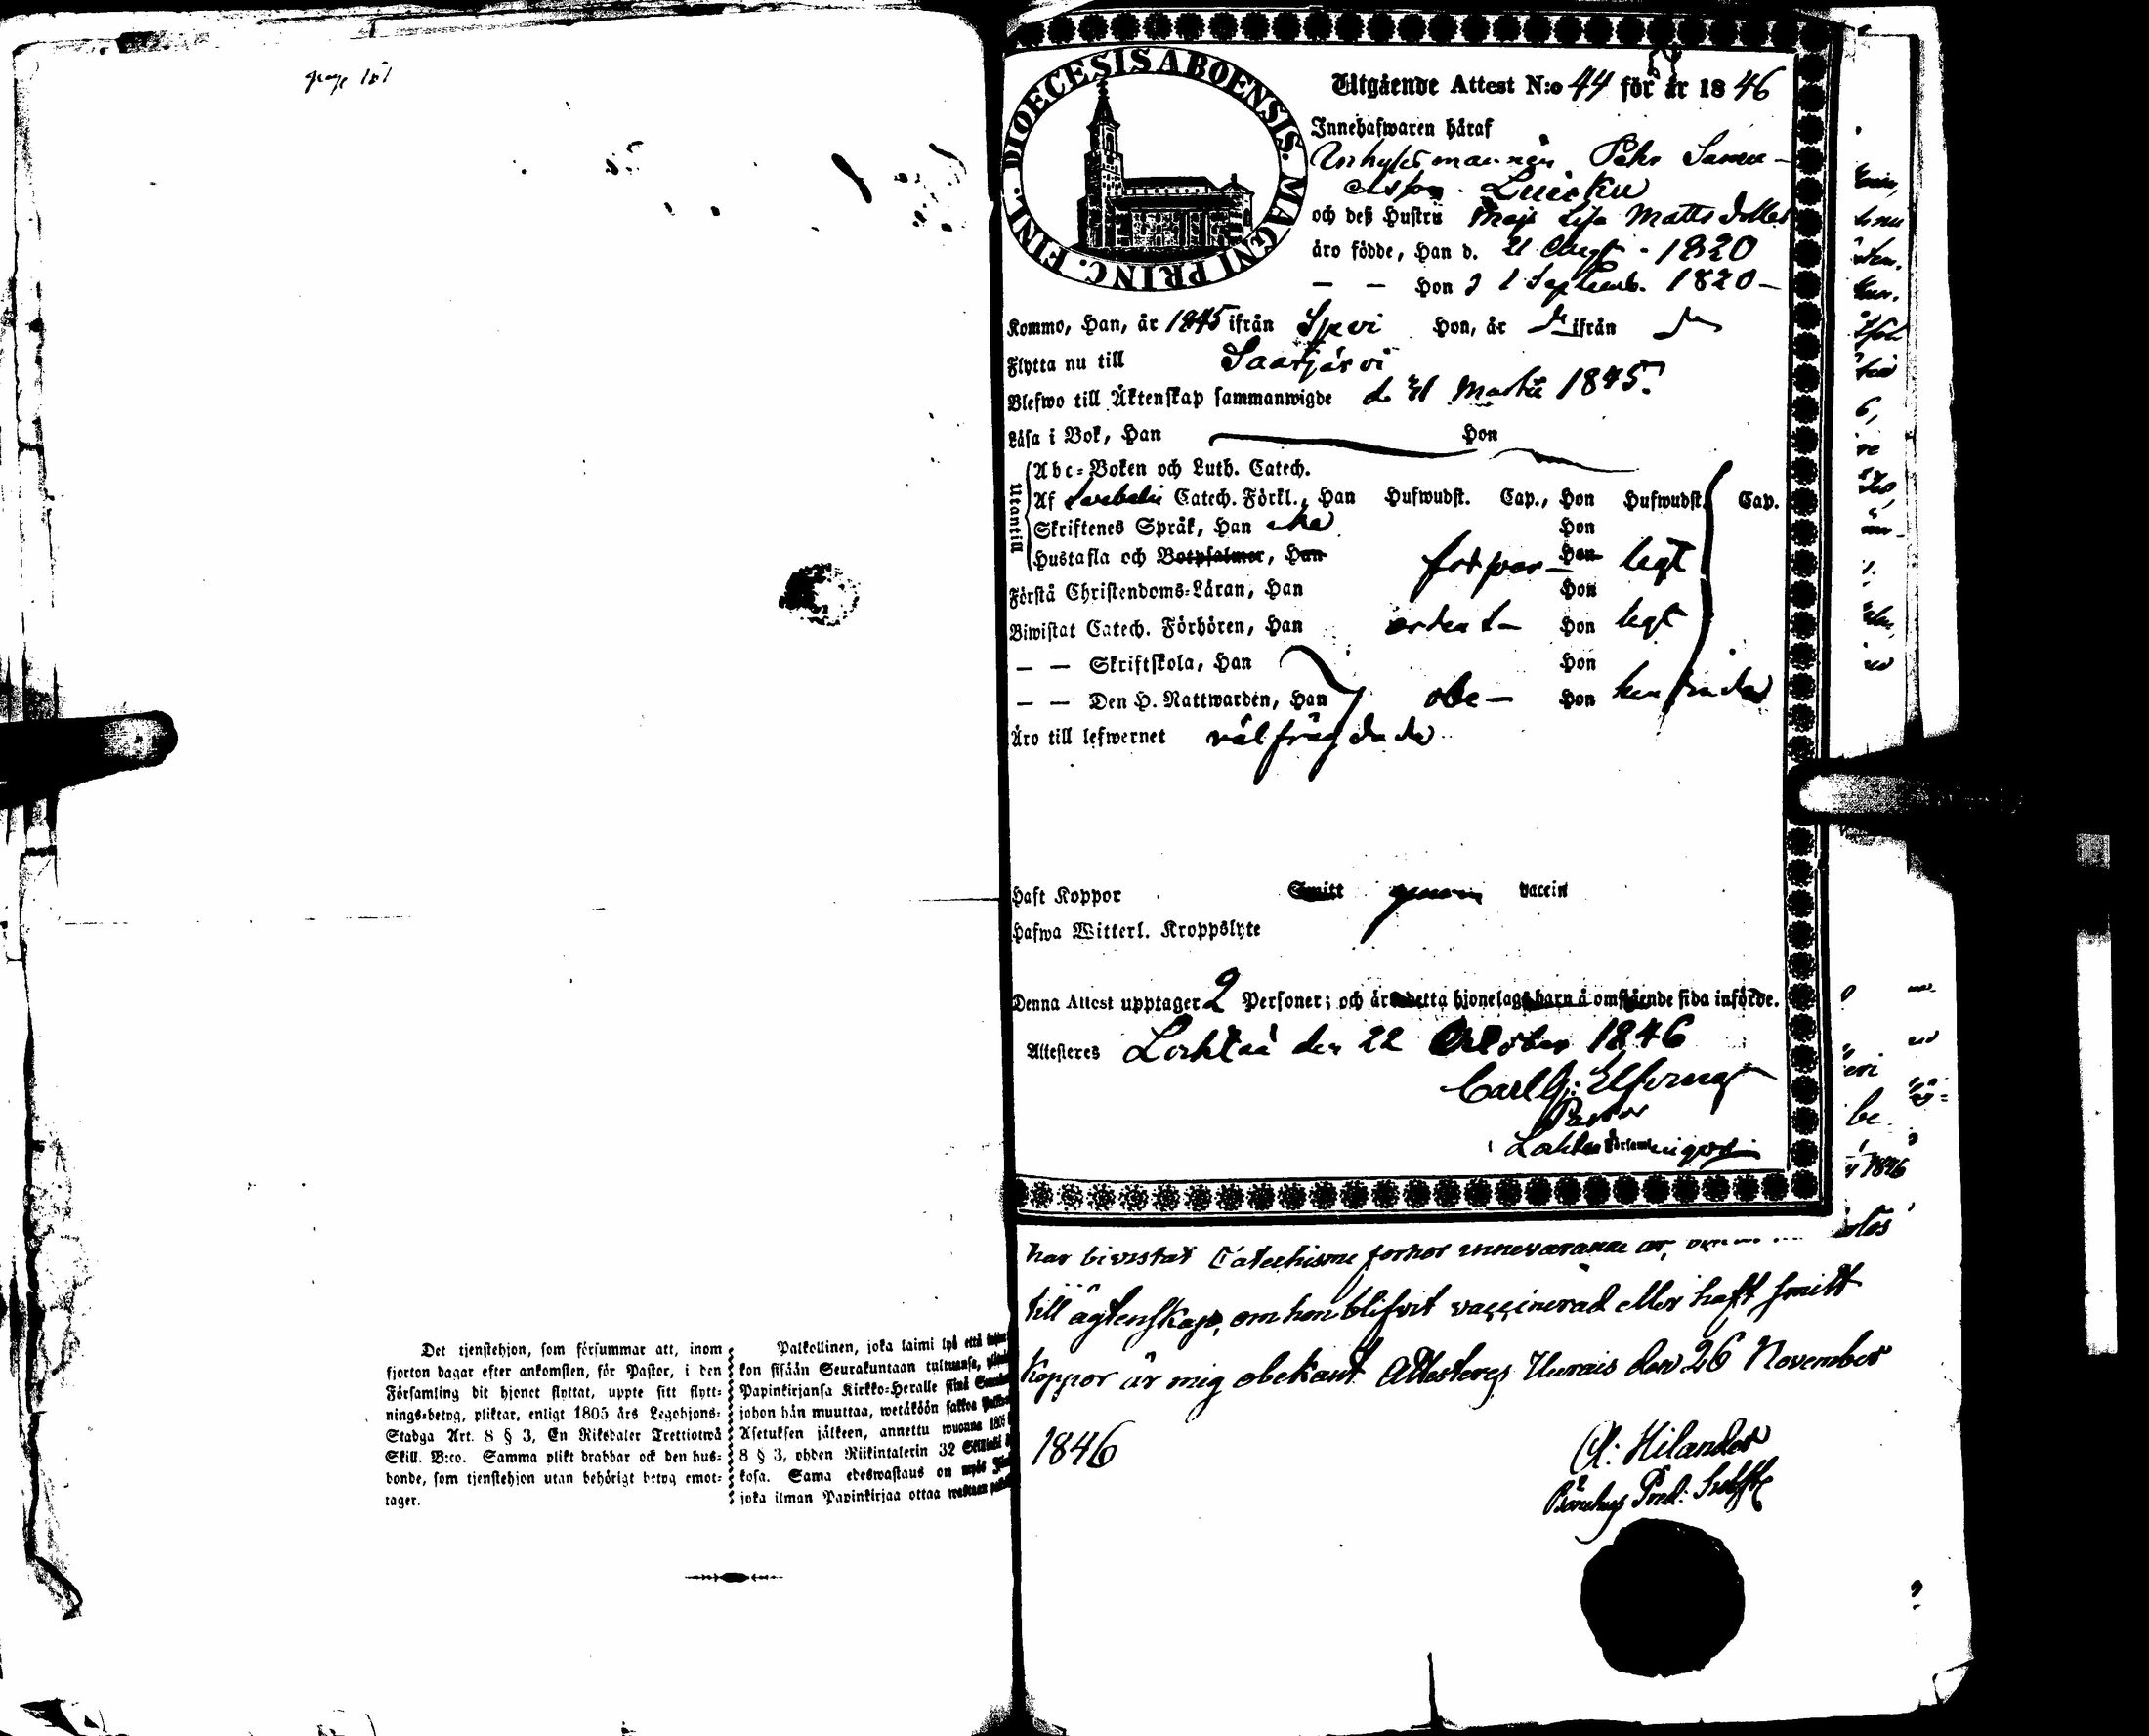 page 151
Det tjenstehjon, som försummar att, inom
fjorton dagar efter ankomsten, för Pastor, i den
Församling dit hjonet flyttat, uppte sitt flytt-
nings-betyg, pliktar, enligt 1805 års Legohjons-
Stadga Art. 8 § 3, En Riksdaler Trettiotwå
Skill. B:co. Samma plikt drabbar ock den hus-
bonde, som tjenstehjon utan behörigt betyg emot-
tager.
Palkollinen, joka laimi lyö että
kon sisään Seurakuntaan tultuansa,
Papinkirjansa Kirkko-Heralle siinä
johon hän muuttaa, wetäköön sakkoa
Asetuksen jälkeen, annettu wuonna 1805
8 § 3, yhden Riikintalerin 32
kosa. Sama edeswastaus on myös
joka ilman Papinkirjaa ottaa wastaan
DIOECESIS ABOENSIS. MAGNI PRINC. FINL.
Utgående Attest N:o 44 för år 1846
Innehafwaren häraf
Inhyses mannen Pehr Samu-
elsson Luicku
och deß Hustru Maja Lisa Matts dotter
äro födde, Han d. 21 Augt - 1820
— — Hon d 1 Septemb. 1820 -
Kommo, Han, år 1845 ifrån Ypevi Hon, år ifrån
Flytta nu till Saarijärvi
Blefwo till Äktenskap sammanwigde d 31 Martii 1845.
Läsa i Bok, Han Hon
Utantill
Abc-Boken och Luth. Catech.
Af Svebelii Catech. Förkl., Han Hufwudst. Cap., Hon Hufwudst. Cap.
Skriftenes Språk, Han Hon
Hustafla och Botpsalmer, Han Hon
Förstå Christendoms-Läran, Han försvar- Hon ligt
Biwistat Catech. Förhören, Han ordent- Hon ligt
— — Skriftskola, Han Hon
— — Den H. Nattwarden, Han obe- Hon hindrade
Äro till lefwernet välfrägdade
Haft Koppor Smitt genom vaccin
Hafwa Witterl. Kroppslyte
Denna Attest upptager 2 Personer; och äro detta hjonelags barn å omstående sida införde.
Attesteres Lochteå den 22 October 1846
Carl G: Elfving
Pastor
Lochteå Församlings
har bivistat Catechismi förhör innevarande år,
till ägtenskap, om hon blifvit vaccinerad eller haft smitt
koppor är mig obekant Attesteras Uurais den 26 November
1846
A: Hilander
Bönehus Pred: